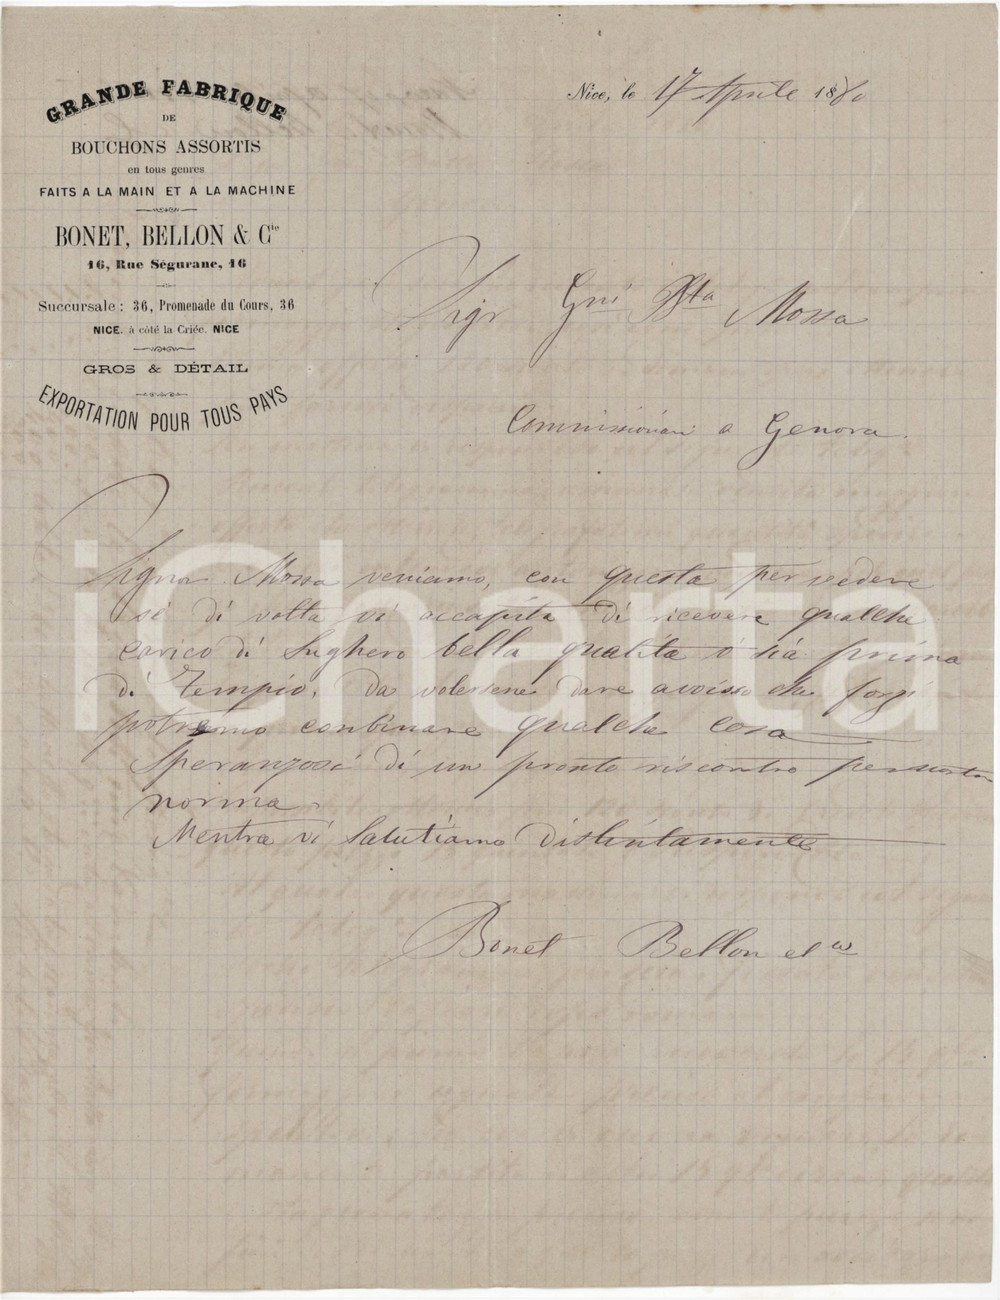 GRANDE FABRIQUE
DE
BOUCHONS ASSORTIS
en tous genres
FAITS A LA MAIN ET A LA MACHINE
BONET, BELLON & Cie
16, Rue Ségurane, 16
Succursale: 36, Promenade du Cours, 36
NICE. à côté la Criée. NICE
GROS & DÉTAIL
EXPORTATION POUR TOUS PAYS
Nice, le 17 Aprile 1880
Sigr Gni Bta Mossa
Commissionari a Genova.
Signor Mossa veniamo, con questa per vedere
si di volta vi accapita di ricevere qualche
carico di Sughero bella qualita o sia prima
di Tempio, da volersene dare avviso che forzi
potremo combinare qualche cosa
Speranzosi di un pronto riscontro per nostra
norma.
Mentra vi Salutiamo Distintamente
Bonet Bellon e
iCharta